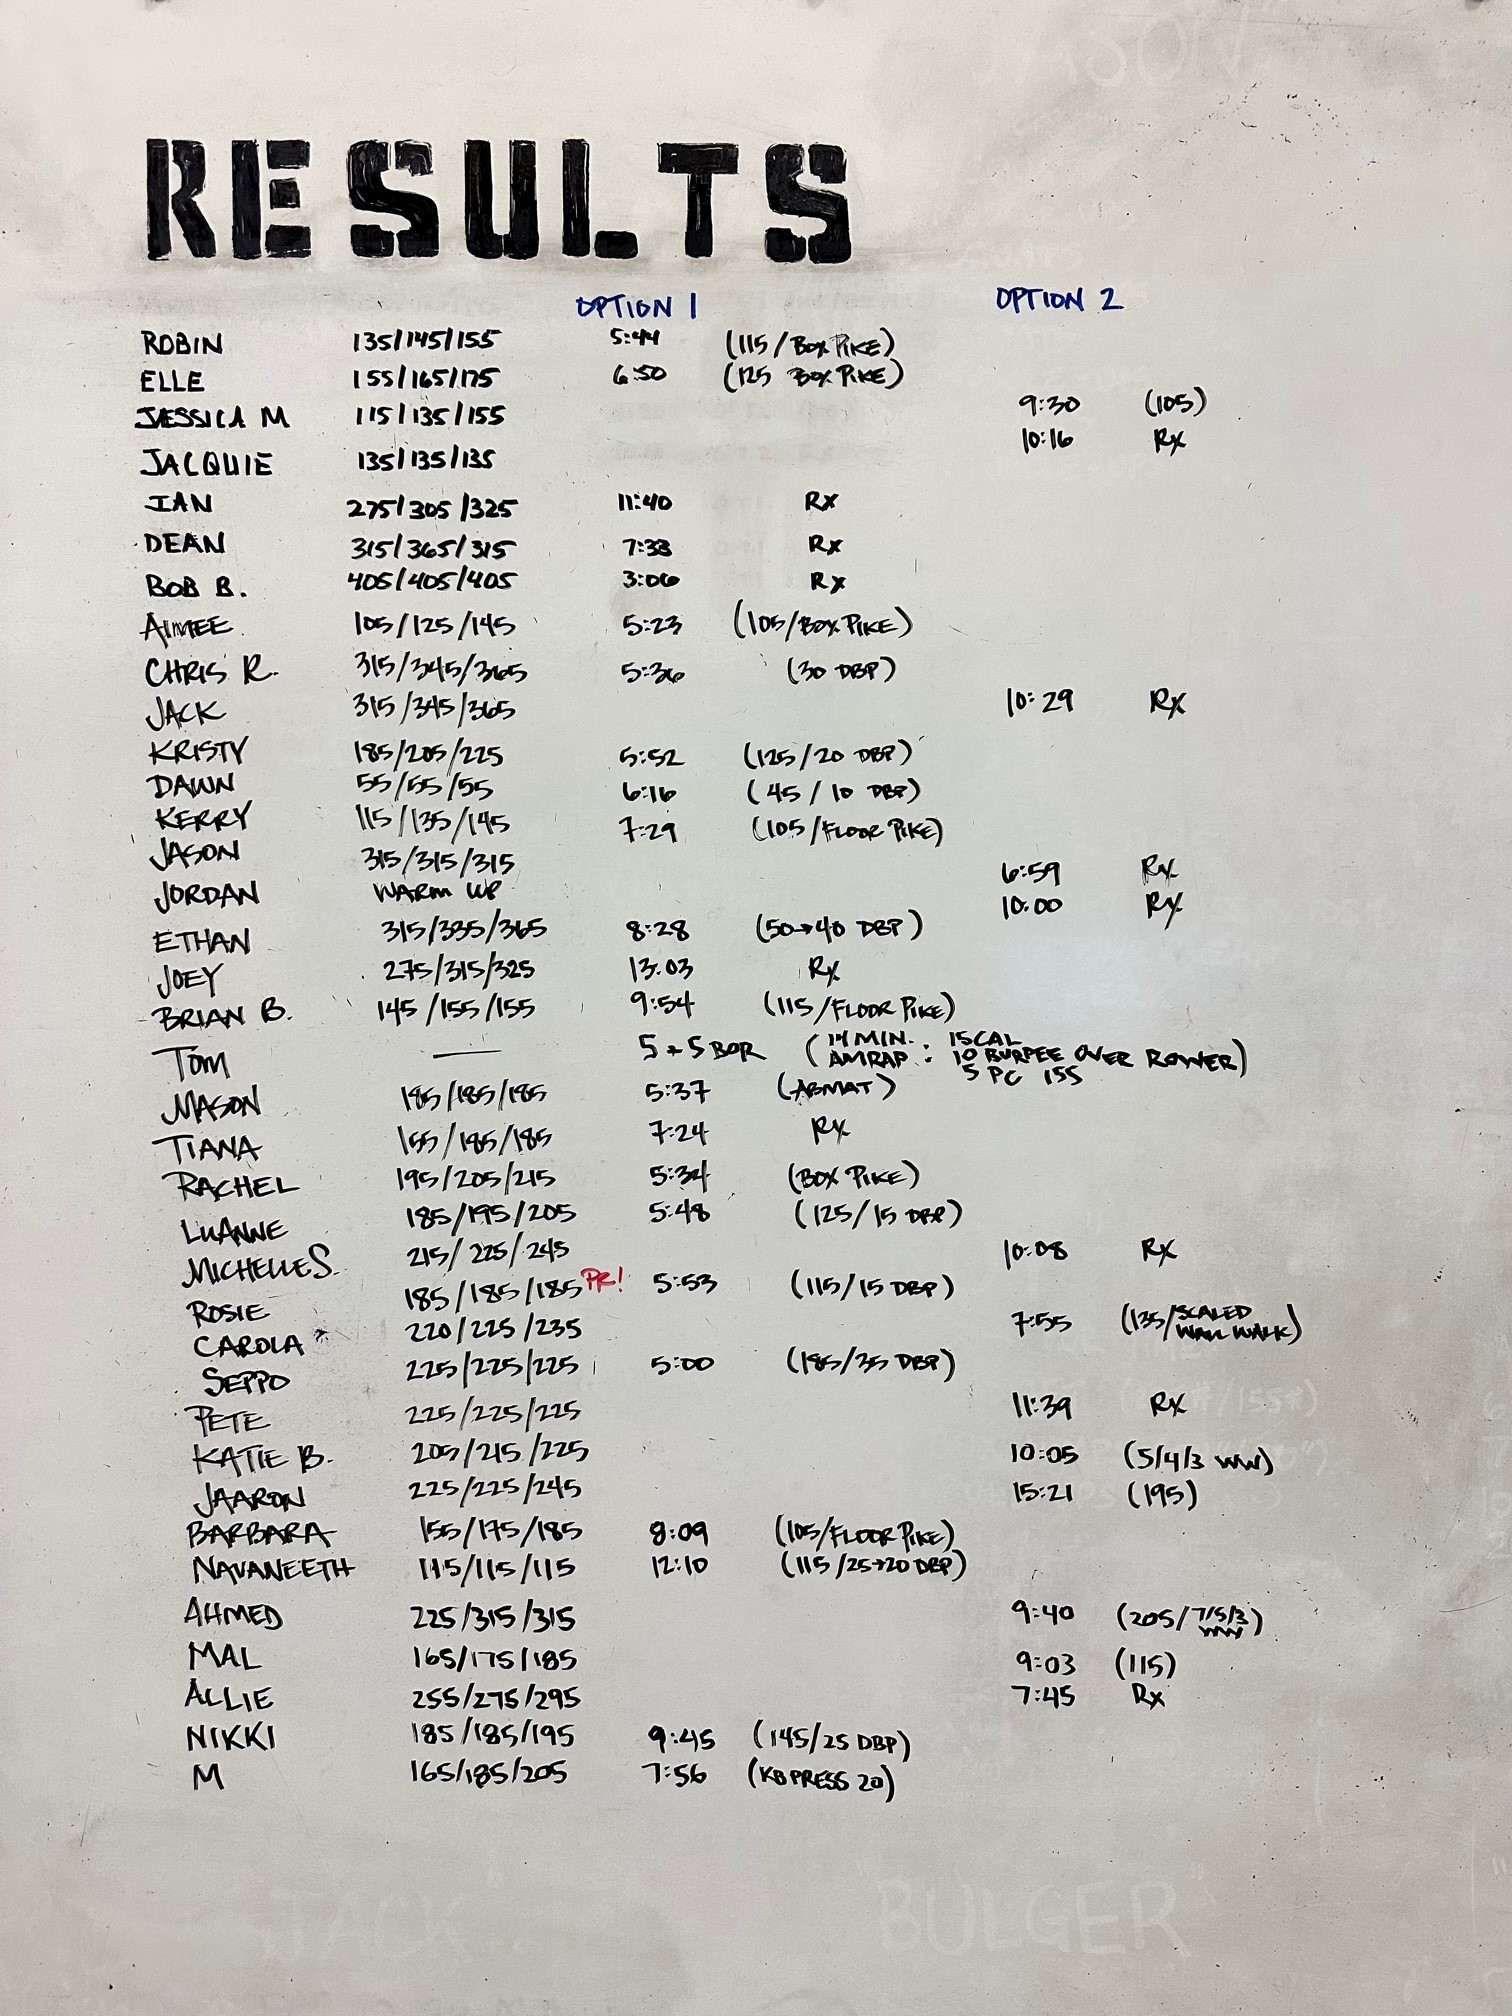 RESULTS
OPTION 1 OPTION 2
ROBIN 135/145/155 5:44 (115/BOX PIKE)
ELLE 155/165/175 6:50 (125 BOX PIKE)
JESSICA M 115/135/155 9:30 (105)
JACQUIE 135/135/135 10:16 RX
IAN 275/305/325 11:40 RX
DEAN 315/365/315 7:33 RX
BOB B. 405/405/405 3:06 RX
AIMEE 105/125/145 5:23 (105/BOX PIKE)
CHRIS R. 315/345/365 5:36 (30 DBP)
JACK 315/345/365 10:29 RX
KRISTY 185/205/225 5:52 (125/20 DBP)
DAWN 55/55/55 6:16 (45/10 DBP)
KERRY 115/135/145 7:29 (105/FLOOR PIKE)
JASON 315/315/315 6:59 RX
JORDAN WARM UP 10:00 RX
ETHAN 315/335/365 8:28 (50→40 DBP)
JOEY 275/315/325 13:03 RX
BRIAN B. 145/155/155 9:54 (115/FLOOR PIKE)
TOM — 5+5 BOR (14 MIN. AMRAP: 15 CAL 10 BURPEE OVER ROWER 5 PC 155)
MASON 185/185/185 5:37 (ABMAT)
TIANA 155/185/185 7:24 RX
RACHEL 195/205/215 5:34 (BOX PIKE)
LUANNE 185/195/205 5:48 (125/15 DBP)
MICHELLE S. 215/225/245 10:08 RX
ROSIE 185/185/185 PR! 5:53 (115/15 DBP)
CAROLA 220/225/235 7:55 (135/SCALED WALL WALK)
SEPPO 225/225/225 5:00 (185/35 DBP)
PETE 225/225/225 11:39 RX
KATIE B. 205/215/225 10:05 (5/4/3 WW)
JAARON 225/225/245 15:21 (195)
BARBARA 155/175/185 8:09 (105/FLOOR PIKE)
NAVANEETH 115/115/115 12:10 (115/25→20 DBP)
AHMED 225/315/315 9:40 (205/7/5/3 WW)
MAL 165/175/185 9:03 (115)
ALLIE 255/275/295 7:45 RX
NIKKI 185/185/195 9:45 (145/25 DBP)
M 165/185/205 7:56 (KB PRESS 20)
JACK
BULGER